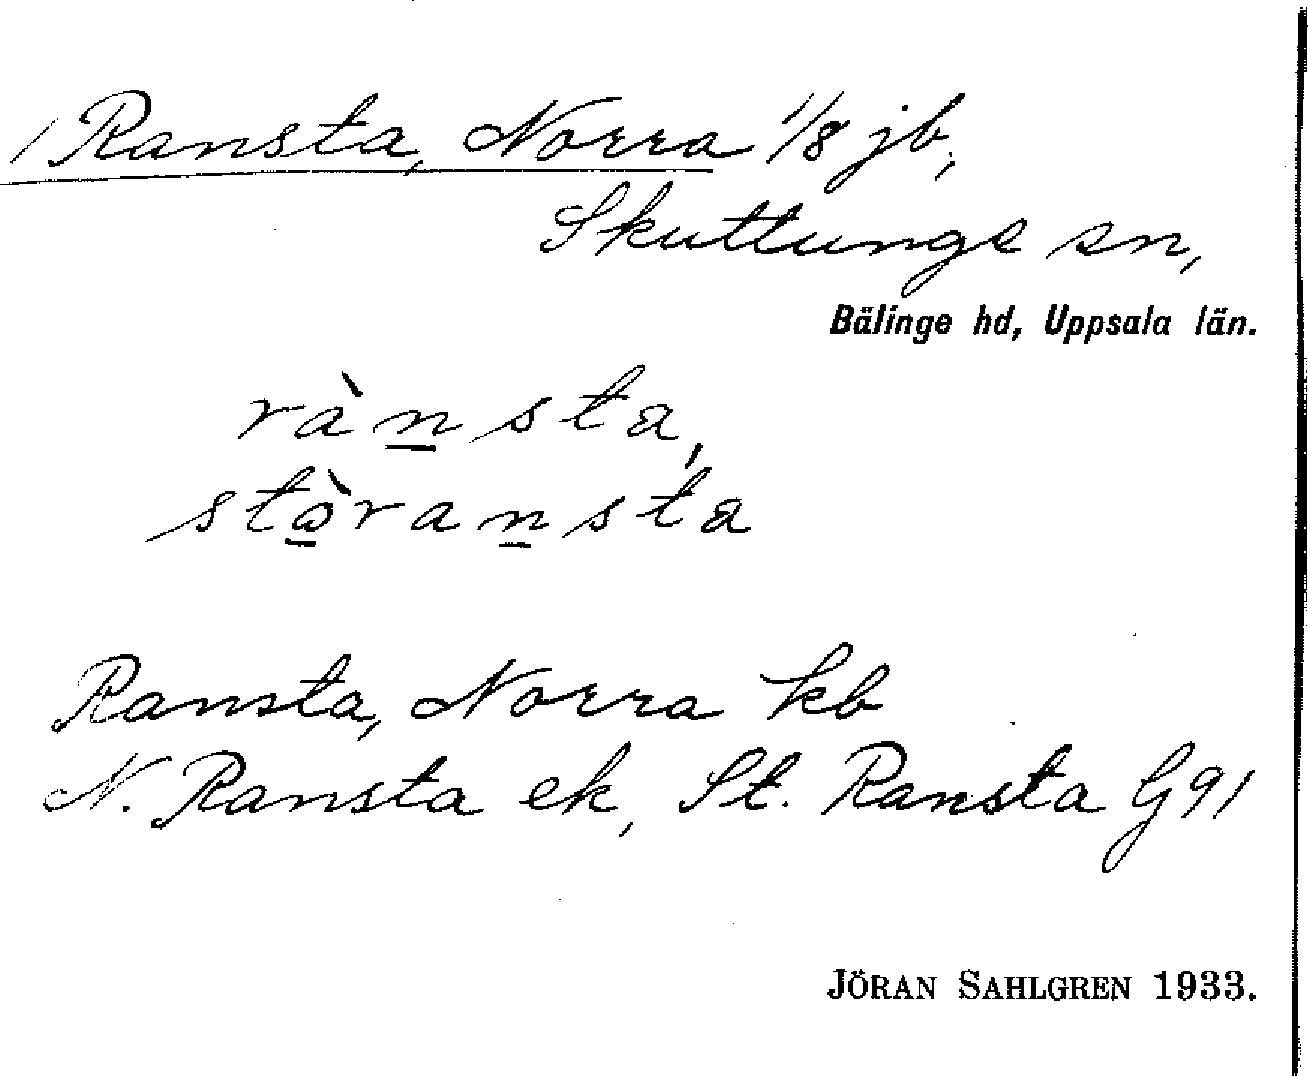 Ransta, Norra 1/8 jb,
Skuttunge sn,
Bälinge hd, Uppsala län.
rànsta,
stòransta
Ransta, Norra kb
N. Ransta ek, St. Ransta G91
JÖRAN SAHLGREN 1933.